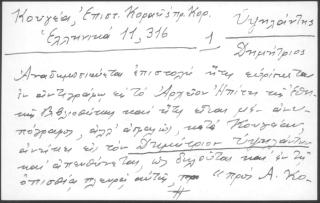 Κουγέα, Ἐπιστ. Κοραῆ πρ. Κορ.
Ὑψηλάντης
Ἑλληνικά 11, 316
1
Δημήτριος
Ἀναδημοσιεύεται ἐπιστολή ἥτις εὑρίσκεται
ἐν ἀντιγράφῳ εἰς τό Ἀρχεῖον τῆς Ἐθνι
κῆς Βιβλιοθήκης καί ἥτις εἶναι μέν ἀνυ
πόγραφος, ἀλλ' ἀσφαλῶς, κατά Κουγέαν,
ἀνήκει εἰς τόν Δημήτριον Ὑψηλάντην
καί ἀπευθύνεται, ὡς δηλοῦται καί ἐν τῇ
ὀπισθίᾳ πλευρᾷ αὐτῆς "πρός Α. Κο-